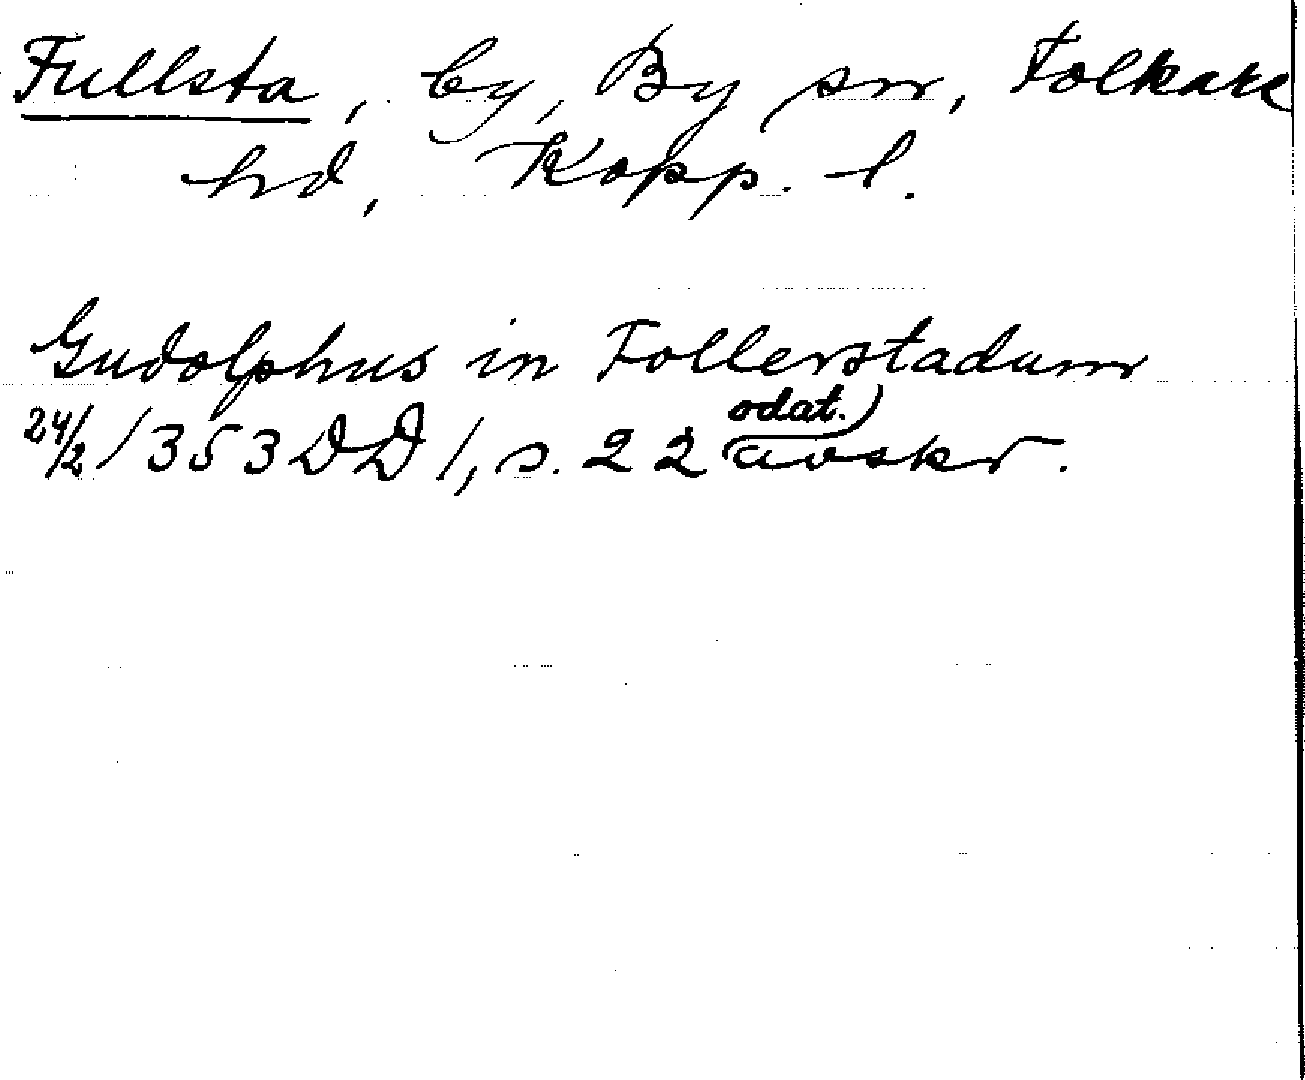 Fullsta, by, By sn, Folkare
hd, Kopp. l.
Gudolphus in Follerstadum
24/2 1353 DD 1, s. 22 odat.) avskr.